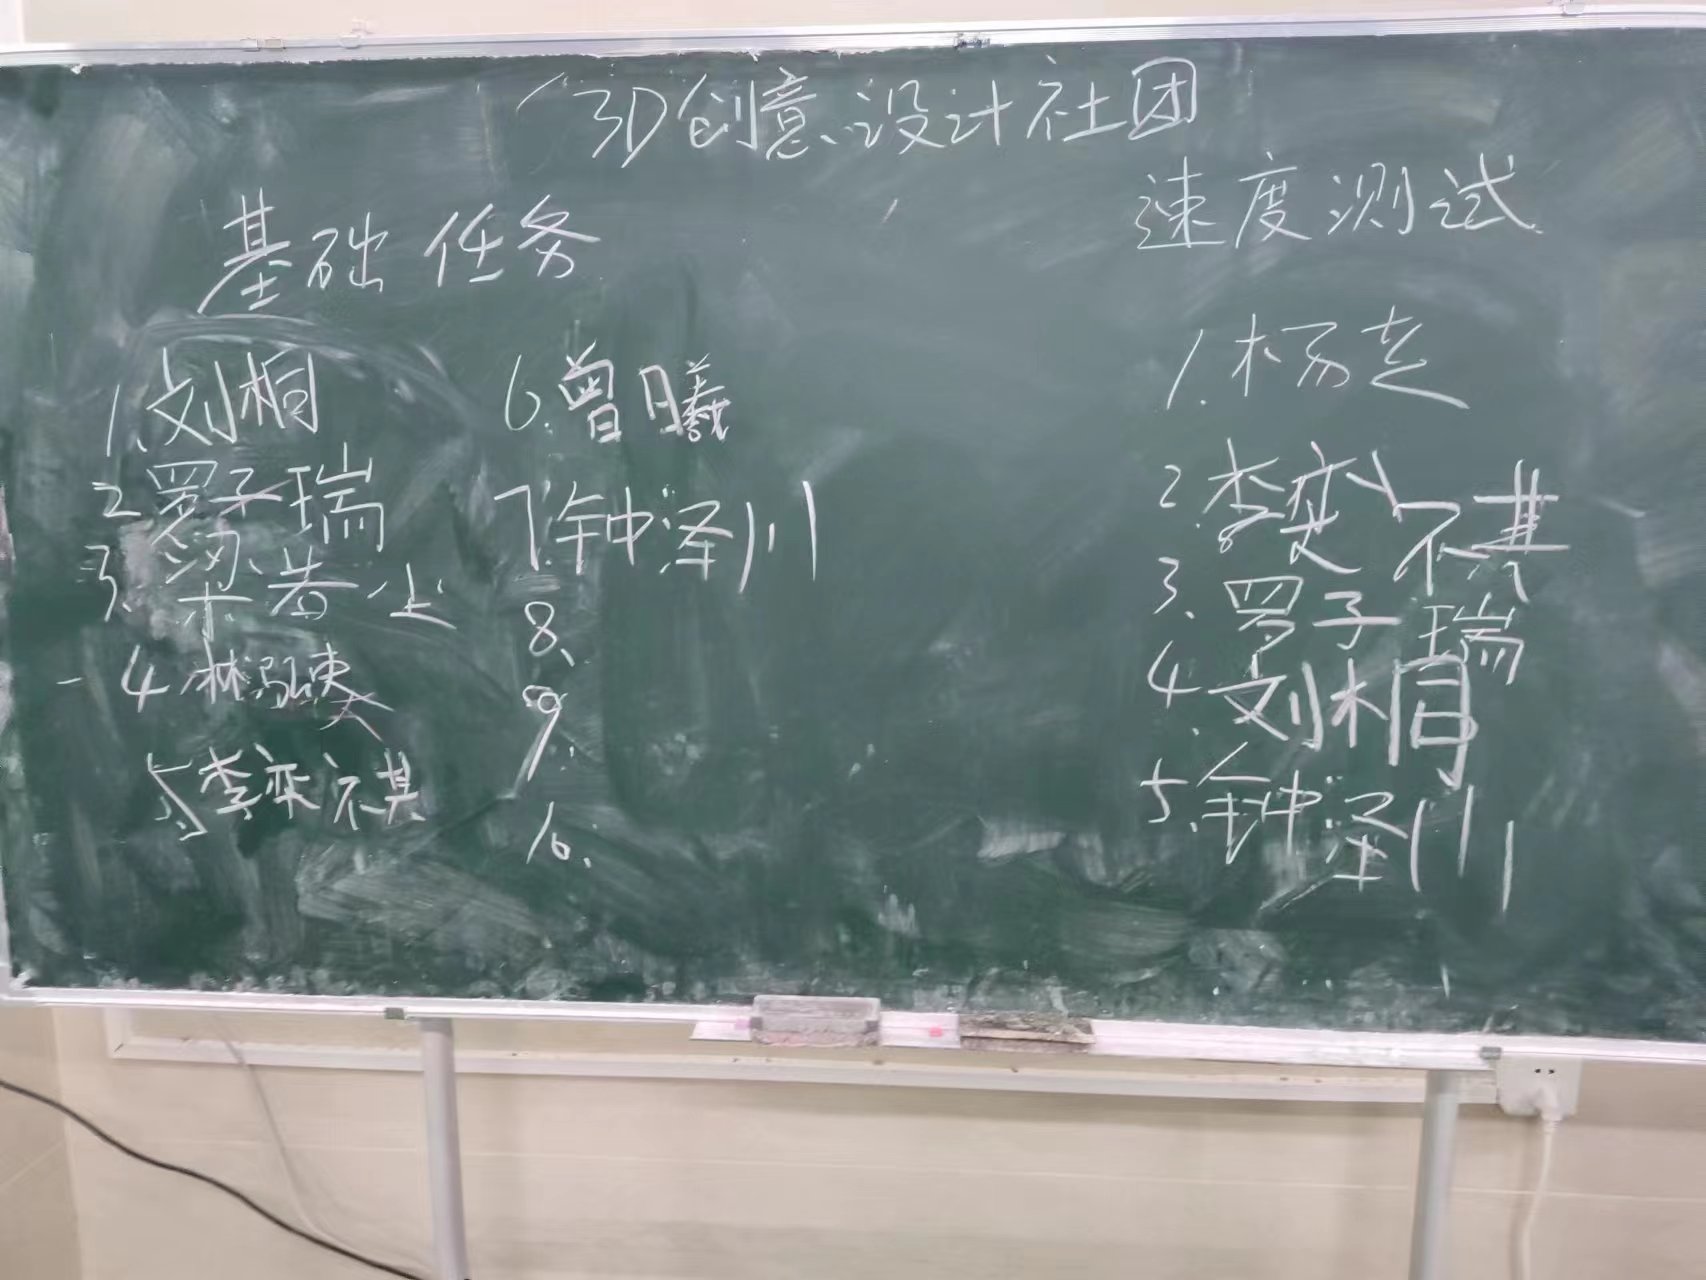 3D创意设计社团
基础任务
1.刘桐
2.罗子瑞
3.梁若尘
4.林
5.李奕祺
6.曾曦
7.钟泽川
8、
9.
10.
速度测试
1.杨
2.李奕祺
3、罗子瑞
4.刘桐
5.钟泽川